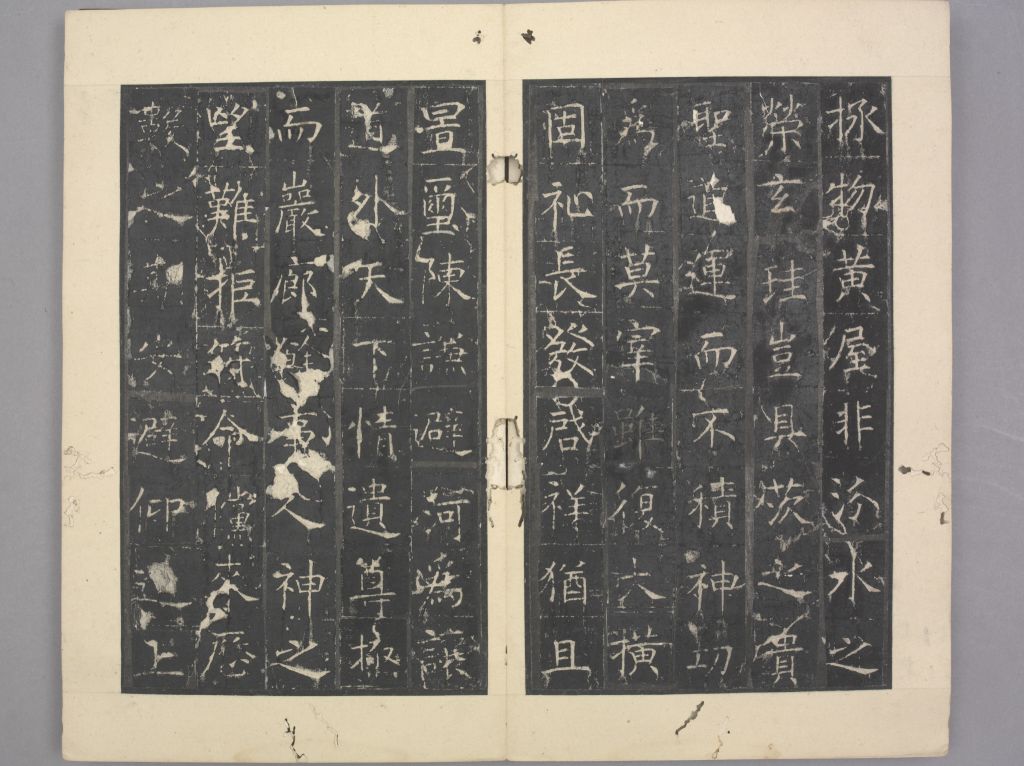 拯物黃屋非汾水之
榮玄珪豈具茨之貴
聖道運而不積神功
為而莫宰雖復大橫
固祉長發啓祥猶且
疊璽陳謙避河為讓
道外天下情遺尊極
而巖廊久神之
望難拒符命儻來歷
數之安避仰上